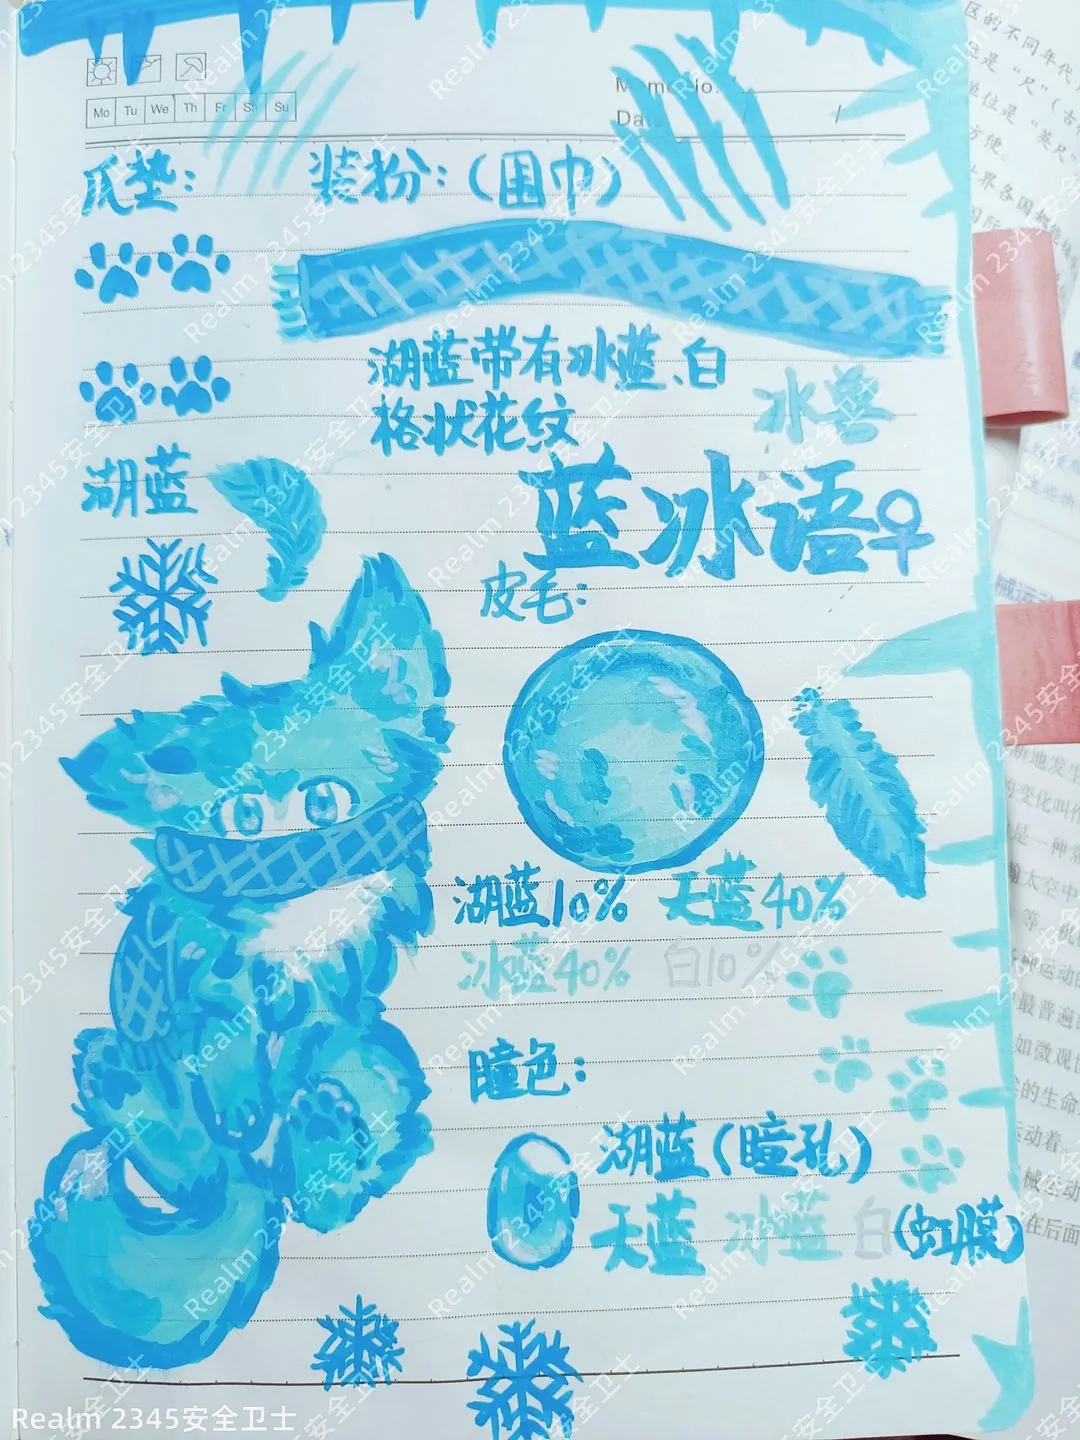 Mo Tu We Th Fr Sa Su
Memo No.
Date / /
爪垫：
装扮：（围巾）
湖蓝带有冰蓝、白
格状花纹
冰兽
湖蓝
蓝冰语♀
皮毛：
湖蓝10% 天蓝40%
冰蓝40% 白10%
瞳色：
湖蓝（瞳孔）
天蓝 冰蓝 白（虹膜）
区的不同年代
位是“尺”（古
单位是“英尺”
方便。
世界各国都能
国际
械运动
断地发生
的变化叫作
是一种常
瀚太空中
等，机
各种运动
最普遍
如微观世
类的生命
运动着。
械运动
在后面
Realm 2345安全卫士